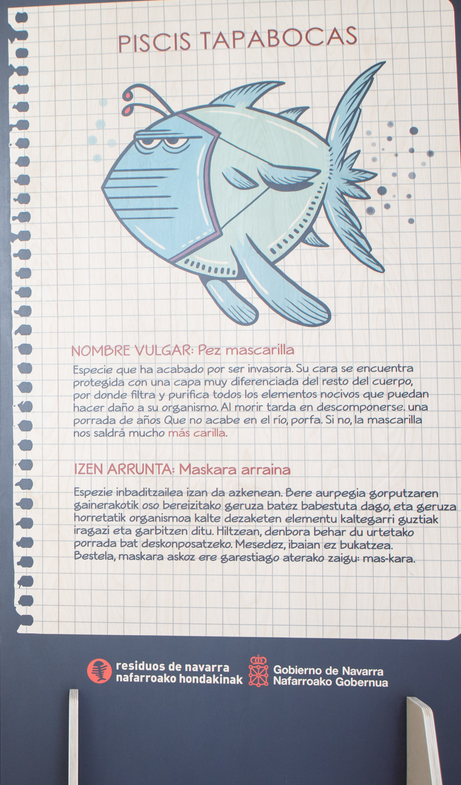 PISCIS TAPABOCAS
NOMBRE VULGAR: Pez mascarilla
Especie que ha acabado por ser invasora. Su cara se encuentra
protegida con una capa muy diferenciada del resto del cuerpo,
por donde filtra y purifica todos los elementos nocivos que puedan
hacer daño a su organismo. Al morir tarda en descomponerse. una
porrada de años Que no acabe en el río, porfa. Si no, la mascarilla
nos saldrá mucho más carilla.
IZEN ARRUNTA: Maskara arraina
Espezie inbaditzailea izan da azkenean. Bere aurpegia gorputzaren
gainerakotik oso bereizitako geruza batez babestuta dago, eta geruza
horretatik organismoa kalte dezaketen elementu kaltegarri guztiak
iragazi eta garbitzen ditu. Hiltzean, denbora behar du urtetako
porrada bat deskonposatzeko. Mesedez, ibaian ez bukatzea.
Bestela, maskara askoz ere garestiago aterako zaigu: mas-kara.
residuos de navarra
nafarroako hondakinak
Gobierno de Navarra
Nafarroako Gobernua